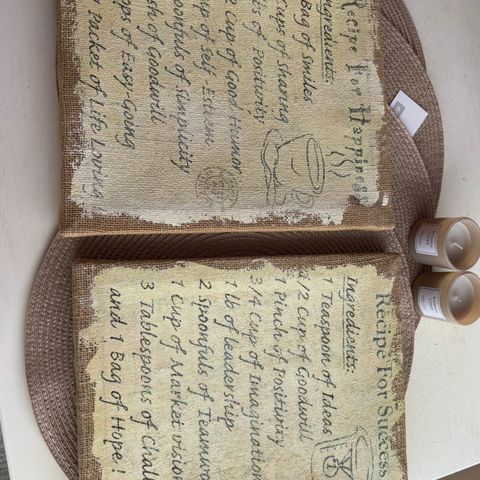 Recipe For Happiness
Ingredients:
Bag of Smiles
Cups of Sharing
of Positivity
2 Cup of Good Humor
up of Self Esteem
poonfuls of Simplicity
sh of Goodwill
ops of Easy-Going
Packet of Life Loving
Recipe For Success
Ingredients:
1 Teaspoon of Ideas
1/2 Cup of Goodwill
1 Pinch of Positivity
3/4 Cup of Imagination
1 Lb of leadership
2 Spoonfuls of Teamwo
1 Cup of Market vision
3 Tablespoons of Chall
and 1 Bag of Hope!